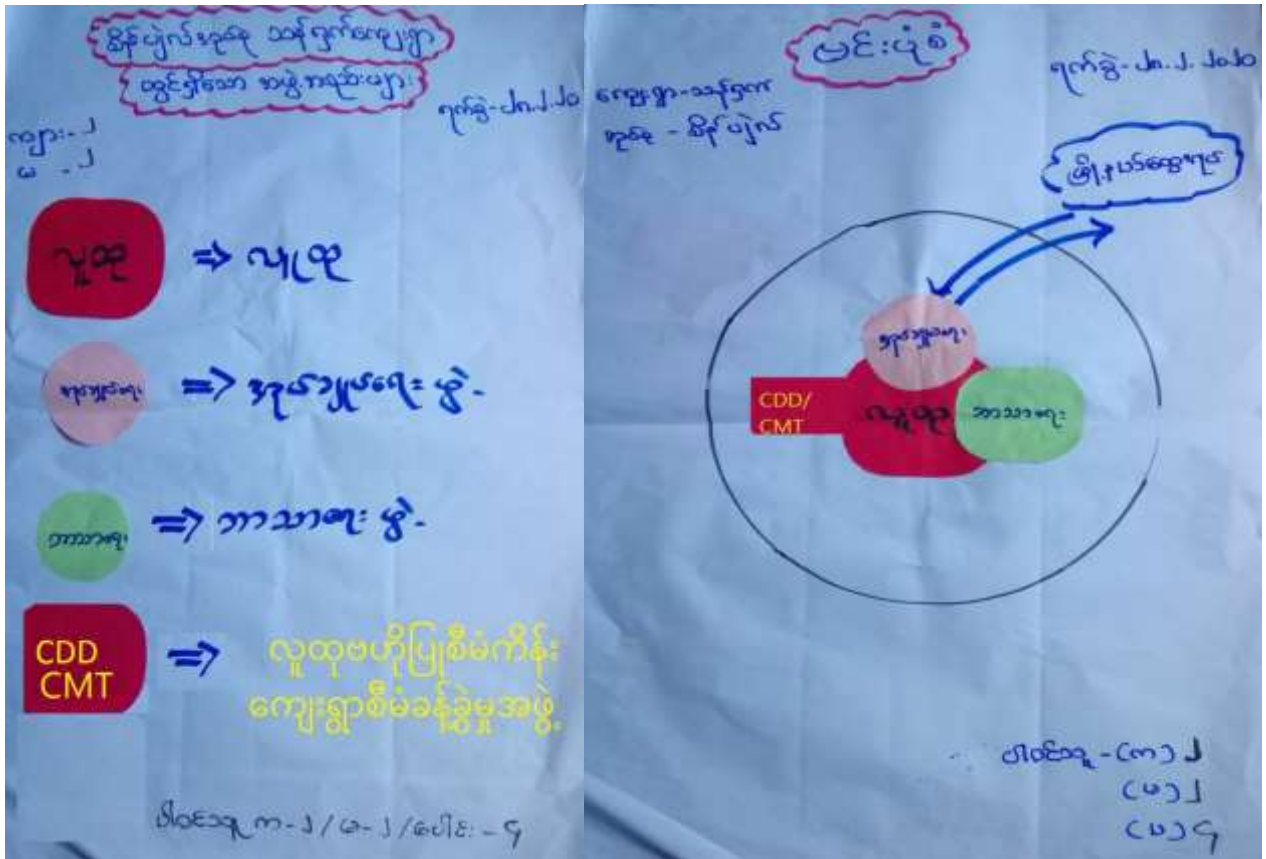 စိန်ပျဲလ်အုပ်စု သန်ရှက်ကျေးရွာ
တွင်ရှိသော အဖွဲ့အစည်းများ
ရက်စွဲ-၂၈.၂.၂၀
ကျား-၂
မ -၂
လူထု ⇒ လူထု
အုပ်ချုပ်ရေး ⇒ အုပ်ချုပ်ရေး ဖွဲ့.
ဘာသာရေး ⇒ ဘာသာရေး ဖွဲ့.
CDD
CMT ⇒ လူထုဗဟိုပြုစီမံကိန်း
ကျေးရွာစီမံခန့်ခွဲမှုအဖွဲ့
ပါဝင်သူ က-၂/မ-၂/ပေါင်း-၄
ဗင်းပုံစံ
ရက်စွဲ-၂၈.၂.၂၀၂၀
ကျေးရွာ-သန်ရှက်
အုပ်စု - စိန်ပျဲလ်
မြို့နယ်ထွေ/အုပ်
အုပ်ချုပ်ရေး
CDD/
CMT
လူထု
ဘာသာရေး
ပါဝင်သူ-(က)၂
(မ)၂
(ပ)၄